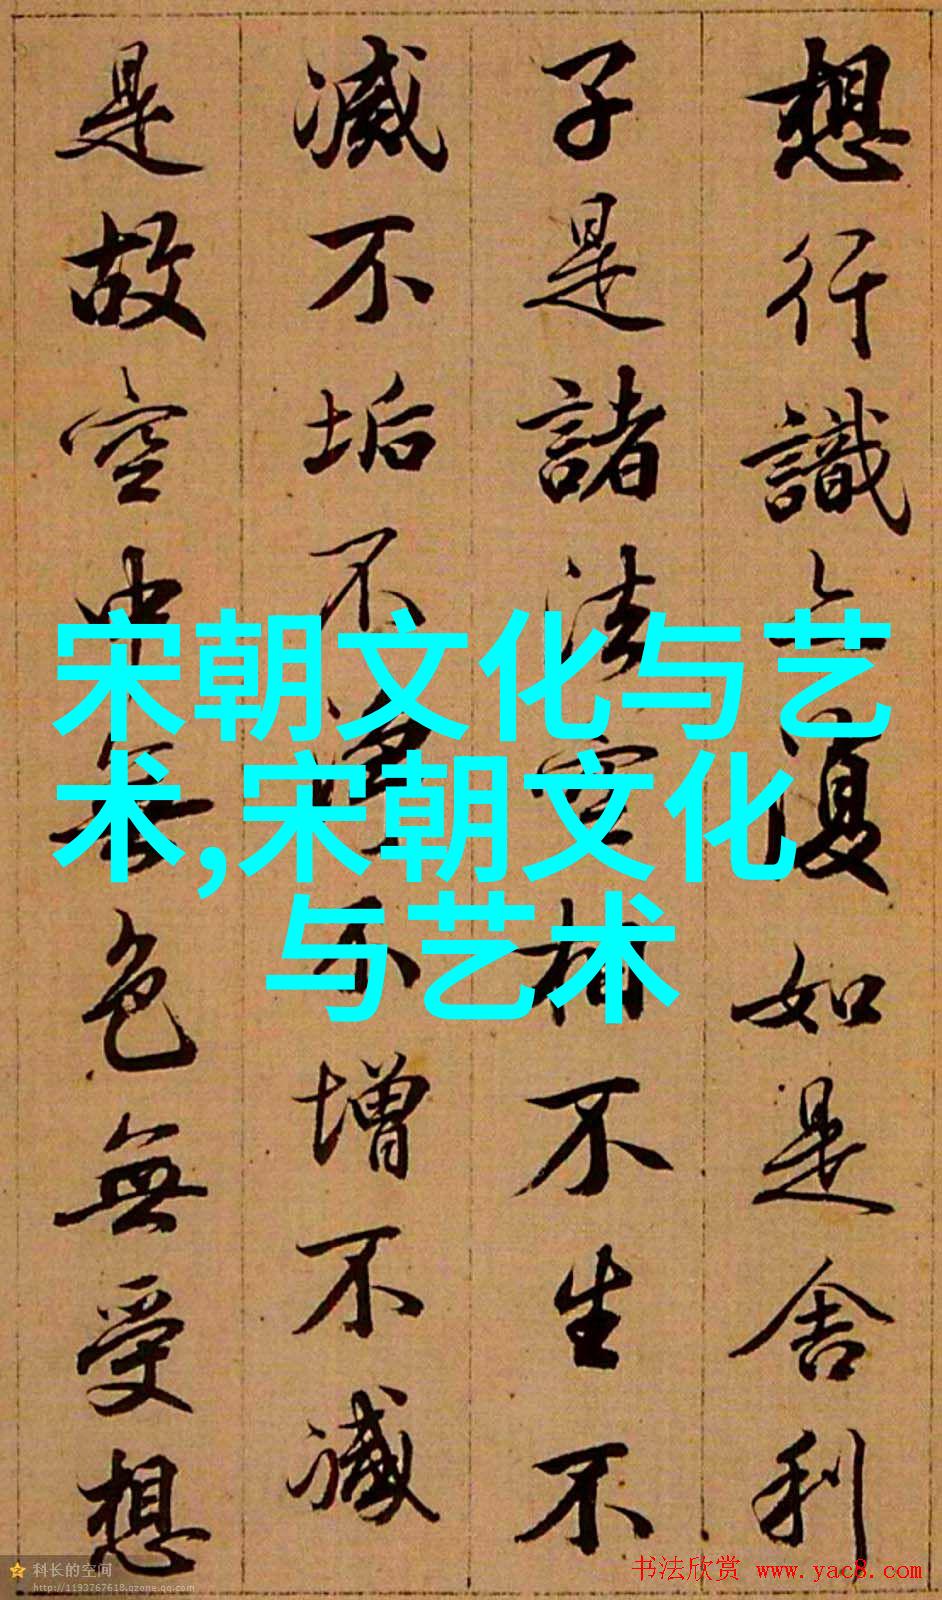 想行識亦復如是舍利
子是諸法空相不生不
滅不垢不淨不增不減
是故空中無色無受想
宋朝文化与艺
术,宋朝文化
与艺术
科长的空间
http://1193767618.qzone.qq.com
书法欣赏 www.yac8.com